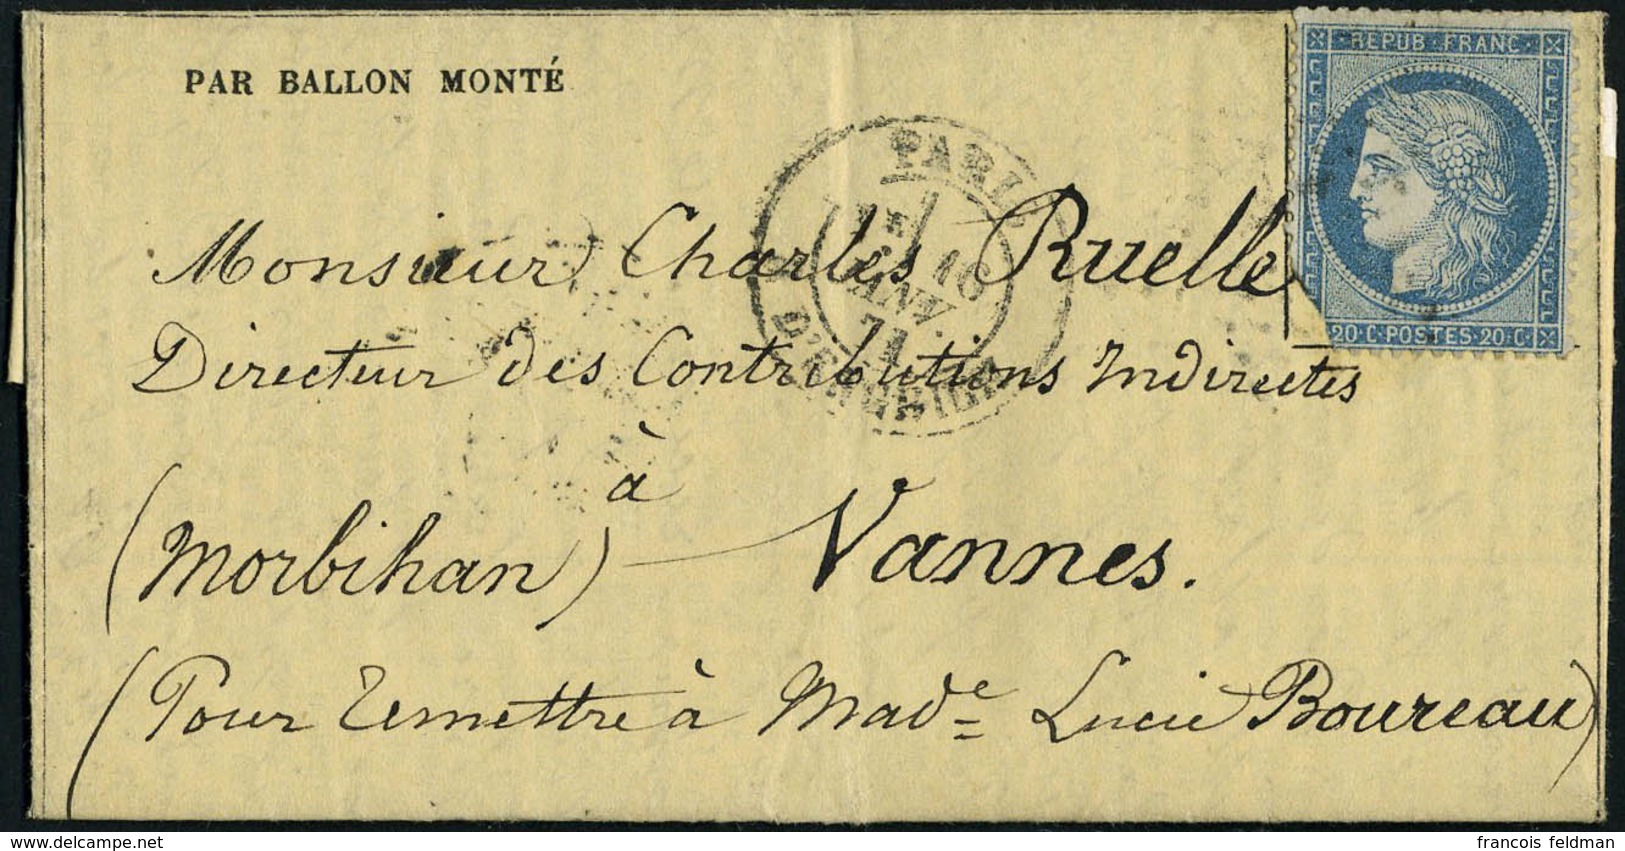 PAR BALLON MONTÉ
REPUB. FRANC.
20·C·POSTES·20·C·
PARIS
16
JANV.
71
Monsieur Charles Ruelle
Directeur des Contributions Indirectes
à
(Morbihan) — Vannes.
(Pour remettre à Made Lucie Boureau)
www.delcampe.net
francois feldman